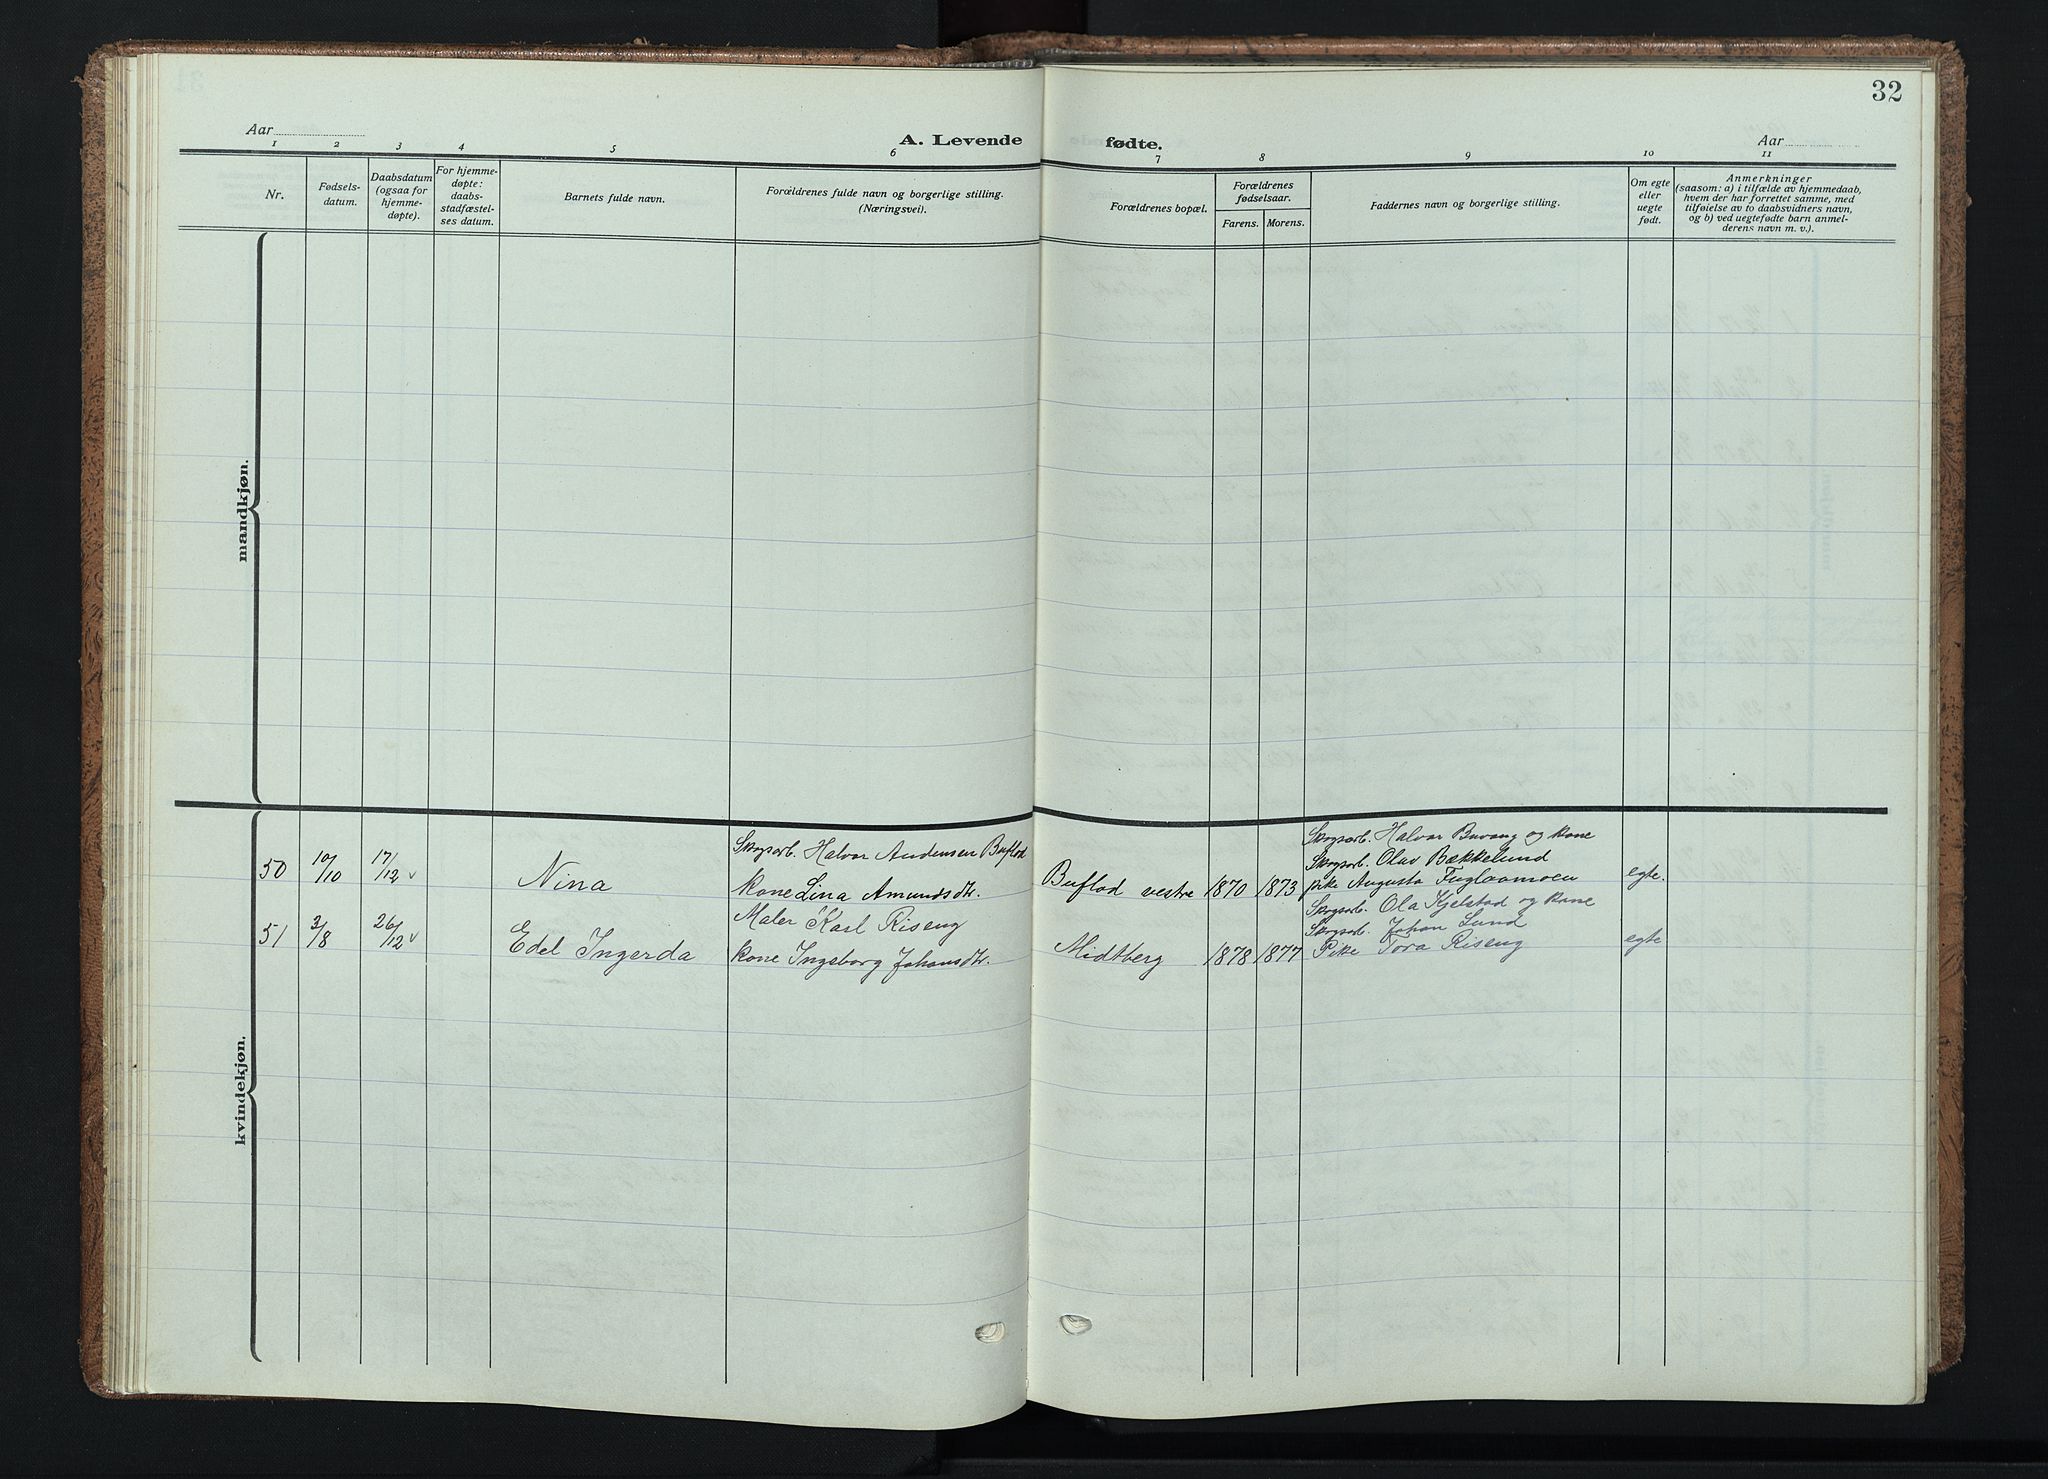 32
Aar
A. Levende fødte.
Aar
1 2 3 4 5 6 7 8 9 10 11
Nr.
Fødsels-
datum.
Daabsdatum
(ogsaa for
hjemme-
døpte).
For hjemme-
døpte:
daabs-
stadfæstel-
ses datum.
Barnets fulde navn.
Forældrenes fulde navn og borgerlige stilling.
(Næringsvei).
Forældrenes bopæl.
Forældrenes
fødselsaar.
Farens. Morens.
Faddernes navn og borgerlige stilling.
Om egte
eller
uegte
født.
Anmerkninger
(saasom: a) i tilfælde av hjemmedaab,
hvem der har forrettet samme, med
tilføielse av to daabsvidners navn,
og b) ved uegtefødte barn anmel-
derens navn m. v.).
mandkjøn.
kvindekjøn.
50 10/10 17/12 v Nina
Skogsarb. Halvor Andersen Buflod
kone Lina Amundsdtr.
Buflod vestre 1870 1873
Skogsarb. Halvor Buvang og kone
Skogsarb. Olav Bækkelund
pike Augusta Fuglaamoen
egte.
51 3/8 26/12 v Edel Ingerda
Maler Karl Riseng
kone Ingeborg Johansdtr.
Midtberg 1878 1877
Skogsarb. Ola Kjelstad og kone
Skogsarb. Johan Lund
Pike Tora Riseng
egte